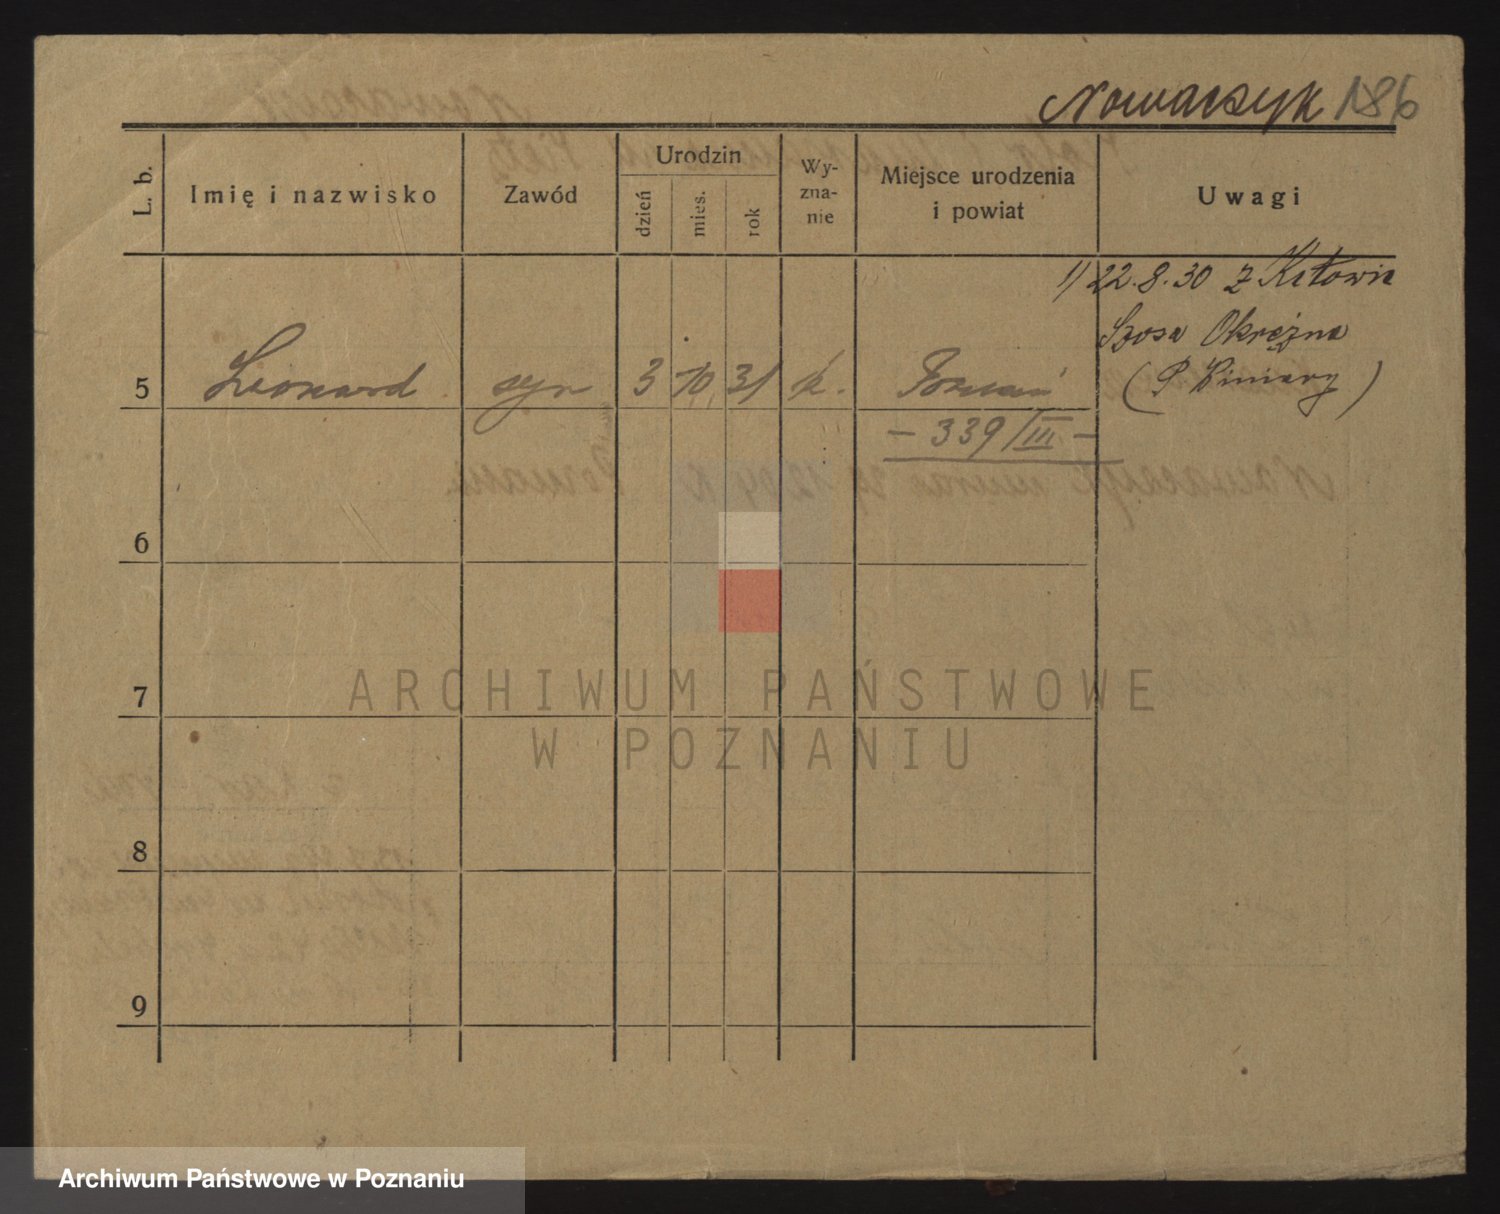 Nowaczyk 186
L. b.
Imię i nazwisko
Zawód
Urodzin
dzień
mies.
rok
Wy-
zna-
nie
Miejsce urodzenia
i powiat
Uwagi
1) 22.8.30 z
Szosa Okrężna
(P. Winiary)
5 Leonard syn 3 10. 31 k. Poznań
- 339/III -
6
7
8
9
ARCHIWUM PAŃSTWOWE
W POZNANIU
Archiwum Państwowe w Poznaniu